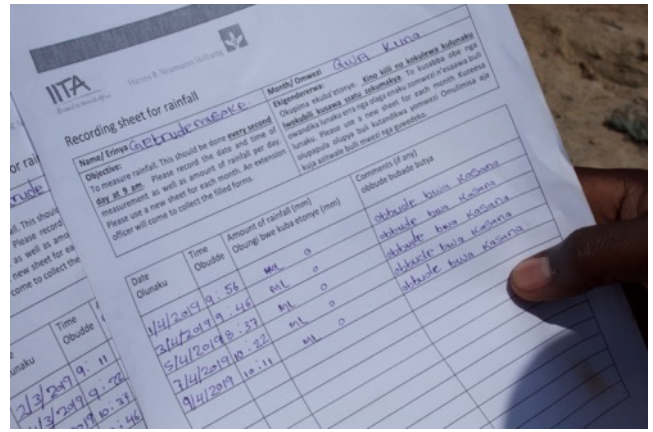 IITA
Hanns R. Neumann Stiftung
Recording sheet for rainfall
Name/ Erinya Gebrude
Month/ Omwezi Gwa Kuna
Objective:
To measure rainfall. This should be done every second
day at 9 am. Please record the date and time of
measurement as well as amount of rainfall per day.
Please use a new sheet for each month. An extension
officer will come to collect the filled forms.
Ekigendererwa:
Okupima ekuba'etonye. Kino kiili no kukolewa kulunaku
lwokubili kusawa statu zokumakye. To kusabba obe nga
owandika lunaku era nga olaga enaku zomwezi n'esaawa buli
lunaku. Please use a new sheet for each month Kozeesa
olupapula olupya buli kutandikwa yomwezi Omulimisa aja
kuja asitwale buli mwezi nga guwedeko.
Date
Olunaku
Time
Obudde
Amount of rainfall (mm)
Obungi bwe kuba etonye (mm)
Comments (if any)
obbude bubade butya
1/4/2019 9:56 ML 0 obbude bwa Kasana
3/4/2019 9:46 ML 0 obbude bwa Kasana
5/4/2019 8:37 ML 0 obbude bwa Kasana.
7/4/2019 10:22 ML 0 obbude bwa Kasana.
9/4/2019 10:11 ML 0 obbude bwa Kasana.
Time
Obudde
2/3/2019 9:11